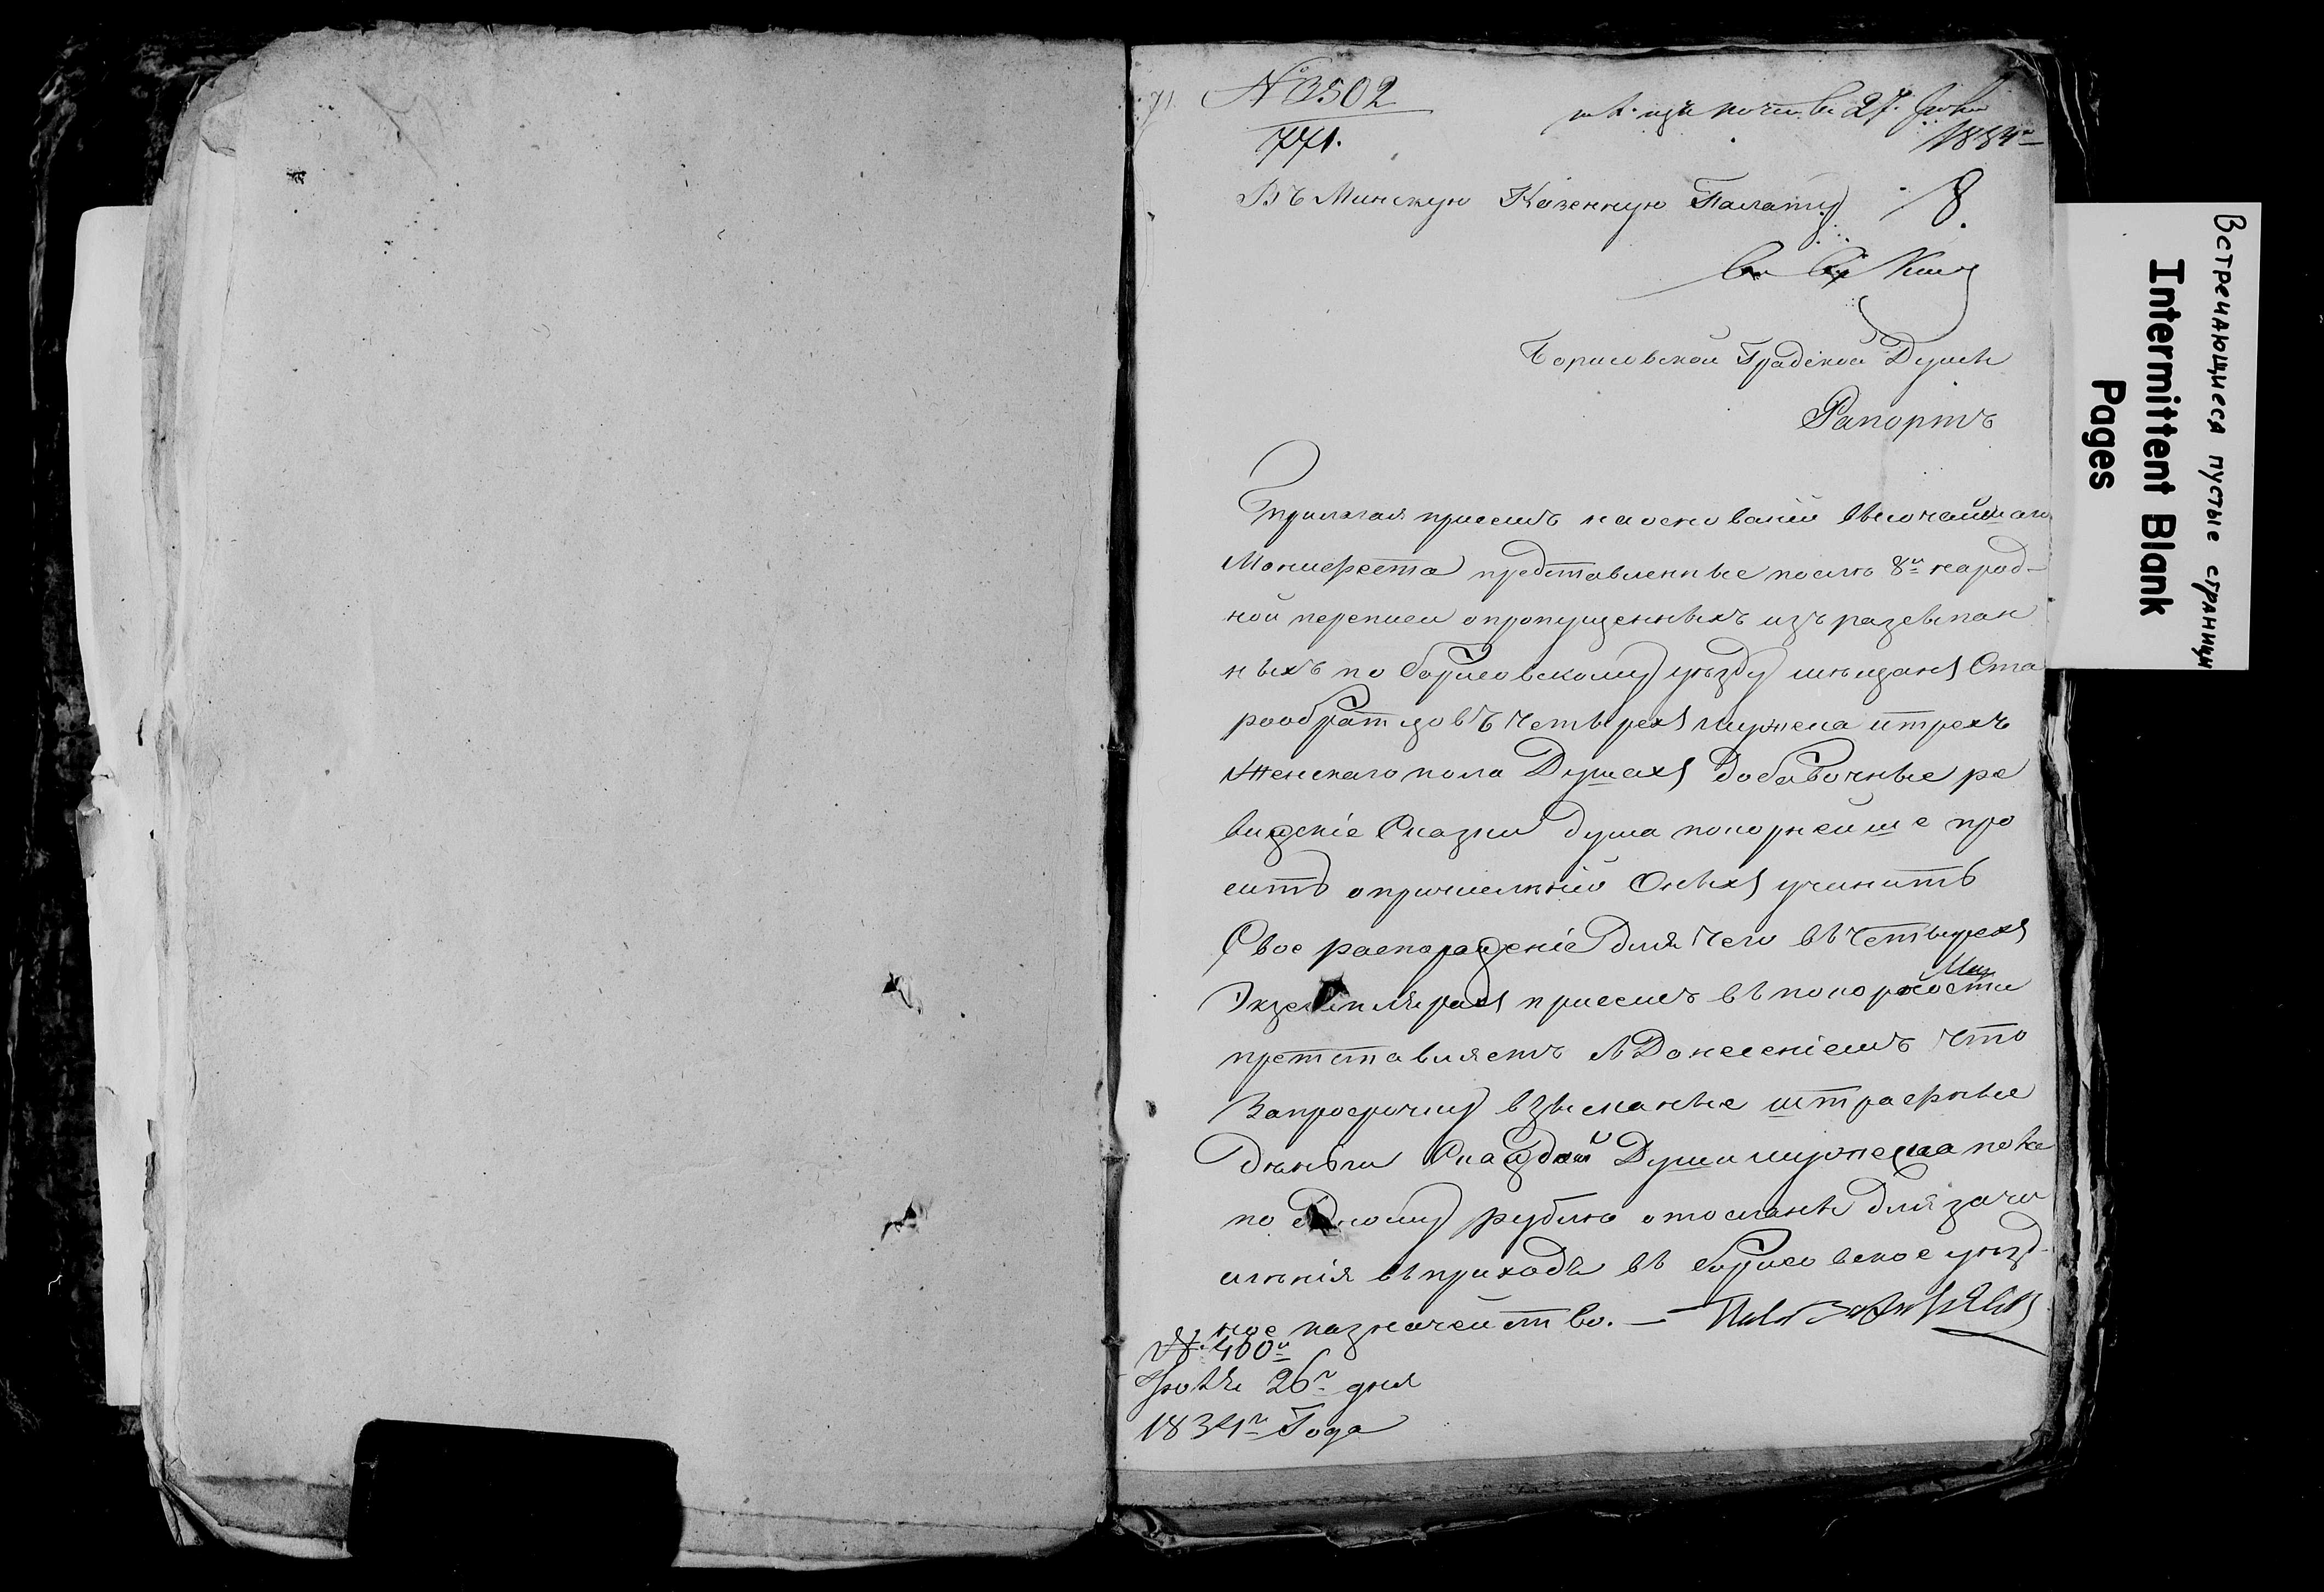 № 3502
771.
27. Июня
1834го
Въ Минскую Казенную Палату
8.
Борисовской Градской Думы
Рапортъ
Прилагая присемъ на основаніи Высочайшаго
Манифеста представленные послѣ 8й народ-
ной переписи о пропущенныхъ изъ разсыпан
ныхъ по борисовскому уѣзду мѣщанъ Ста
рообратцовъ Четырехъ мужеска итрехъ
Женскаго пола Душахъ добавочные ре
визскіе Сказки дума покорнейше про
ситъ опричисленіи Оныхъ учинить
Свое распоряженіе для чего въ Четырехъ
Экземплярахъ присемъ въ покорности
претставляетъ Донесеніемъ что
Запросрочку взысканые штрафные
деньги Скаждой Души мужеска пола
по одному рублю отосланы для зачи
сленія въ приходъ въ борисовское уѣзд-
ное казначейство. —
№ 400й
Июня 26го дня
1834го Года
Встречающиеся пустые страницы
Intermittent Blank
Pages